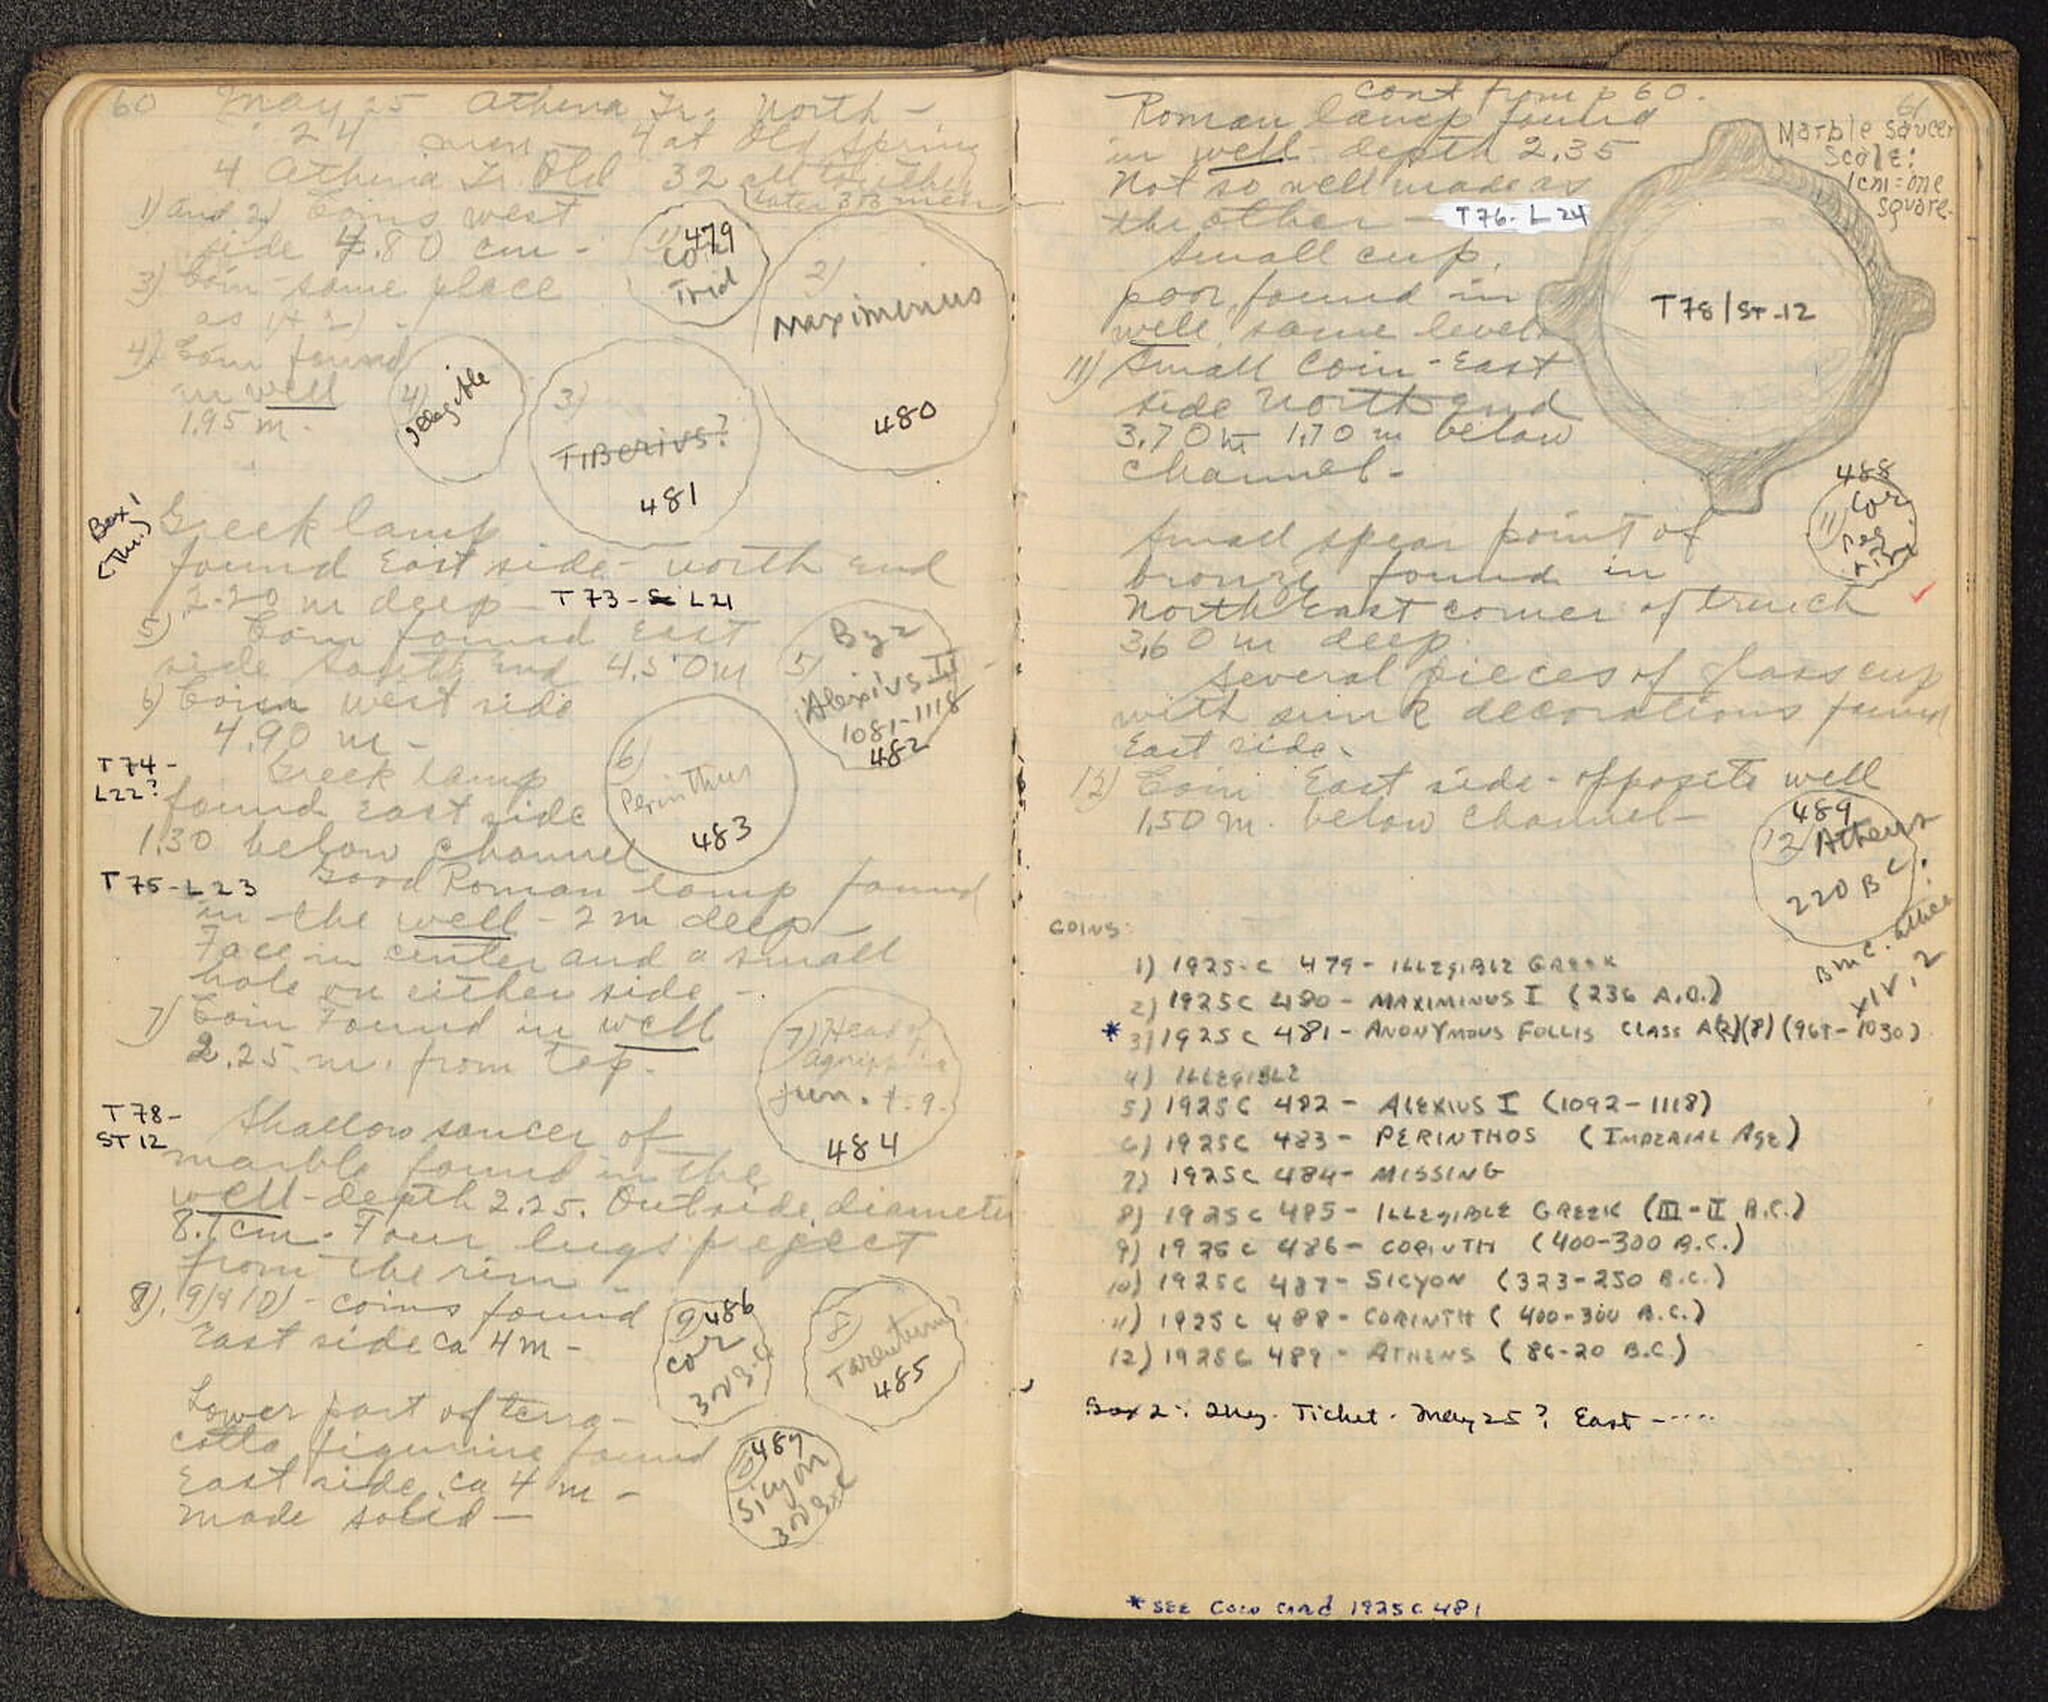 60 May 25 Athena Tr. North -
24 men 4 at Old Spring
4 Athena Tr. Old 32 all together
later 33 men
1) and 2) Coins west
side 4.80 cm -
3) Coin - same place
as 1 + 2) -
4) Coin found
in well
1.95 m -
1) 479
Cor
Trid
2)
Maximinus
480
3)
Tiberius?
481
4)
Illegible
Box 1
Greek lamp
found East side - north end
2.20 m deep - T 73 - L 21
5) Coin found East
side South end 4.50 m
5) Byz
Alexius I
1081-1118
482
6) Coin west side
4.90 m -
6)
Perinthus
483
T 74 -
L22?
Greek lamp
found East side
1.30 below channel
T 75 - L 23
Good Roman lamp found
in the well - 2 m deep
Face in center and a small
hole on either side -
7) Coin Found in well
2.25 m. from top.
7) Head of
Agrippina
Jun.
484
T 78 -
ST 12
Shallow saucer of
marble found in the
well - depth 2.25. Outside diameter
8.7 cm. Four lugs project
from the rim -
8), 9) 10) - coins found
East side ca 4 m -
9) 486
Cor
300 B.C.
8)
Tarentum?
485
Lower part of terra-
cotta figurine found
East side ca 4 m -
made solid -
10) 487
Sicyon
300
61
cont from p 60.
Roman lamp found
in well - depth 2.35
Not so well made as
the other - T 76 - L 24
Marble saucer
Scale:
1cm = one
square.
T 78 / ST-12
Small cup,
poor, found in
well, same level
11) Small Coin - East
side North end
3.70 m 1.70 m below
channel -
488
11) Cor
Peg
Trid
Small spear point of
bronze found in
North East corner of trench
3.60 m deep.
Several pieces of glass cup
with sunk decorations found
East side.
12) Coin East side - opposite well
1.50 m. below channel -
489
12) Athens
220 B.C.
BMC. Attica
XIV, 2
COINS:
1) 1925-C 479 - ILLEGIBLE GREEK
2) 1925C 480 - MAXIMINUS I (236 A.D.)
* 3) 1925 C 481 - ANONYMOUS FOLLIS CLASS A(2)(8) (967-1030)
4) ILLEGIBLE
5) 1925C 482 - ALEXIUS I (1092-1118)
6) 1925C 483 - PERINTHOS (IMPERIAL AGE)
7) 1925C 484 - MISSING
8) 1925C 485 - ILLEGIBLE GREEK (III-II B.C.)
9) 1925C 486 - CORINTH (400-300 B.C.)
10) 1925C 487 - SICYON (323-250 B.C.)
11) 1925C 488 - CORINTH (400-300 B.C.)
12) 1925C 489 - ATHENS (86-20 B.C.)
Box 2: Ticket. May 25?, East - ....
* SEE COIN CARD 1925C 481